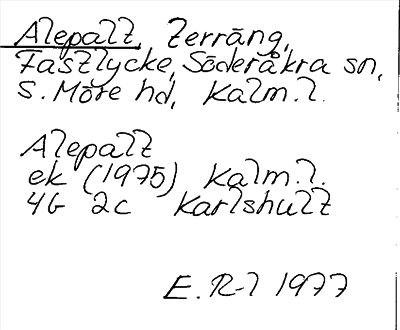 Alepalt, Terräng,
Fastlycke, Söderåkra sn,
S. Möre hd, Kalm. l.
Alepalt
ek (1975) Kalm. l.
4G 2c Karlshult
E. R-l 1977